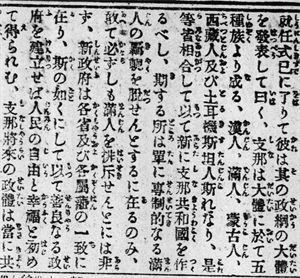 就任式已に了りて彼は其の政綱の大體
を發表して曰く、支那は大體に於て五
種族より成る、漢人、滿人、蒙古人
西藏人及び土耳機斯坦人斯れなり、是
等當相合して以て新に支那共和國を作
るべし、期する所は單に專制的なる滿
人の羈絆を脫せんとするに在るのみ、
敢て必ずしも滿人を排斥せんとには非
ず、新政府は各省及び各屬藩の一致に
在り、斯の如くにして以て善良なる政
府を建立せば人民の自由と幸福と初め
て得られむ、支那將來の政體は當に共